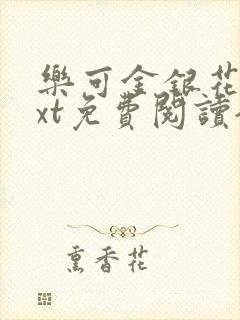 樂可金銀花
xt免費閱讀
熏香花